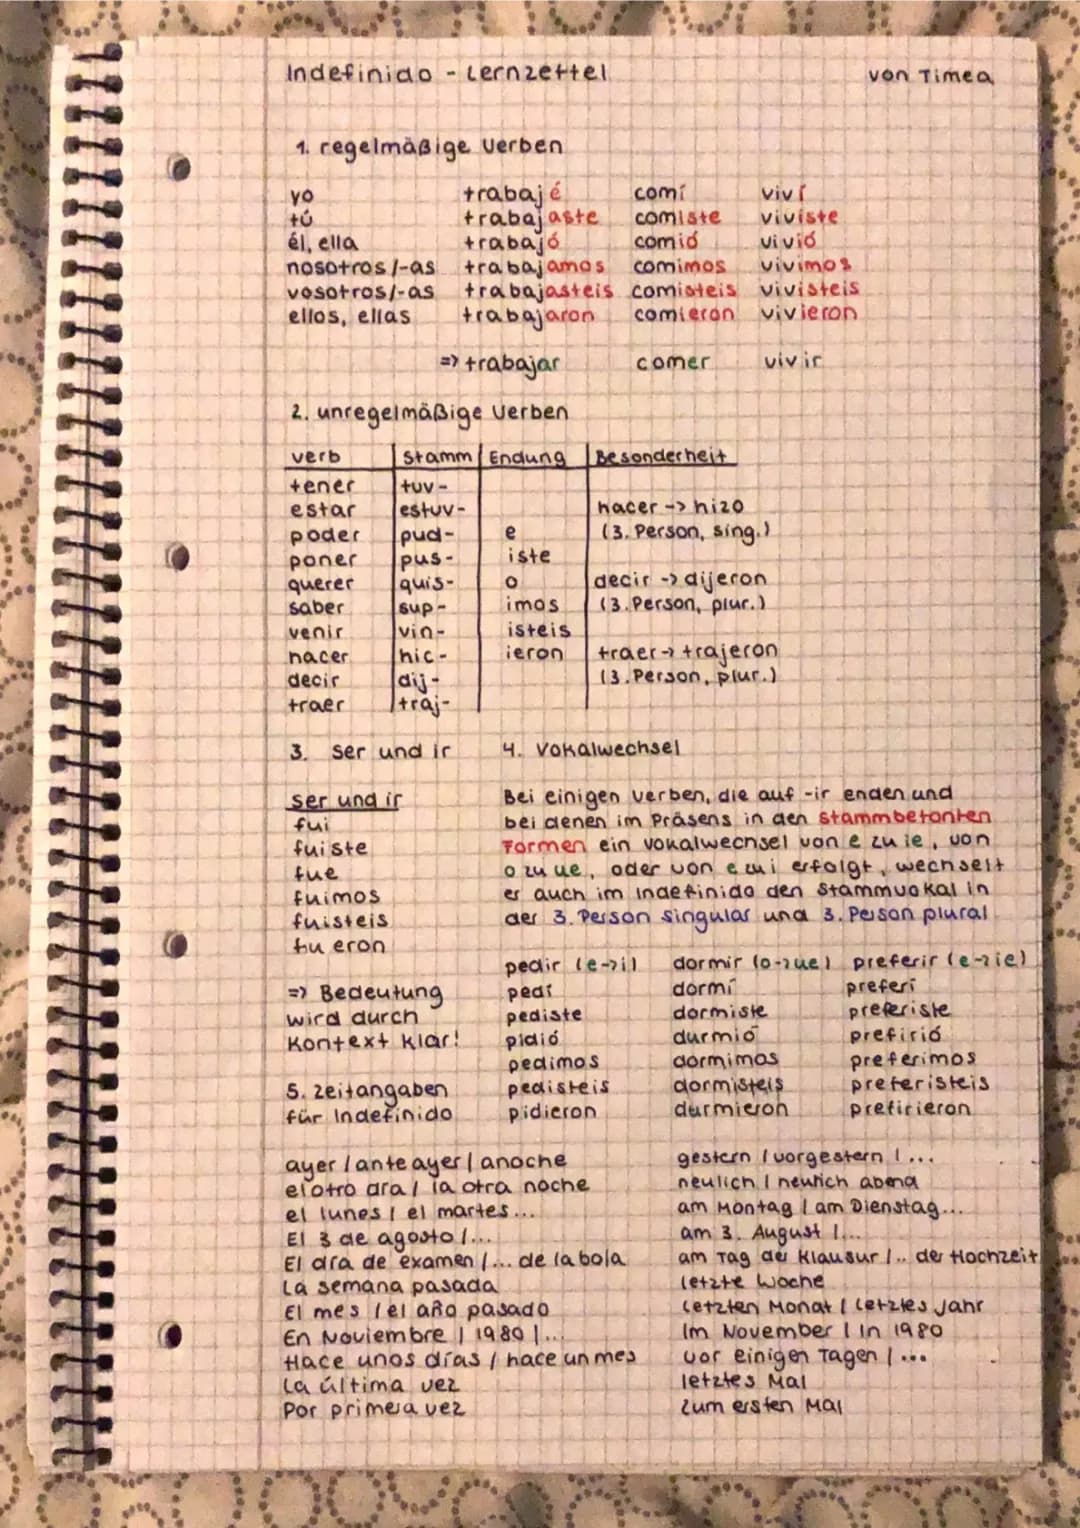 Indefinido - Lernzettel von Timea
1. regelmäßige Verben
yo trabajé comí viví
tú trabajaste comiste viviste
él, ella trabajó comió vivió
nosotros/-as trabajamos comimos vivimos
vosotros/-as trabajasteis comisteis vivisteis
ellos, ellas trabajaron comieron vivieron
=> trabajar comer vivir
2. unregelmäßige Verben
verb Stamm Endung Besonderheit
tener tuv-
estar estuv- hacer -> hizo
poder pud- e (3. Person, sing.)
poner pus- iste
querer quis- o decir -> dijeron
saber sup- imos (3. Person, plur.)
venir vin- isteis
hacer hic- ieron traer -> trajeron
decir dij- (3. Person, plur.)
traer traj-
3. ser und ir 4. Vokalwechsel
ser und ir
fui
fuiste
fue
fuimos
fuisteis
fueron
=> Bedeutung
wird durch
Kontext klar!
Bei einigen Verben, die auf -ir enden und
bei denen im Präsens in den stammbetonten
Formen ein Vokalwechsel von e zu ie, von
o zu ue, oder von e zu i erfolgt, wechselt
er auch im Indefinido den Stammvokal in
der 3. Person singular und 3. Person plural
pedir (e->i) dormir (o->ue) preferir (e->ie)
pedí dormí preferí
pediste dormiste preferiste
pidió durmió prefirió
pedimos dormimos preferimos
pedisteis dormisteis preferisteis
pidieron durmieron prefirieron
5. Zeitangaben
für Indefinido
ayer / anteayer / anoche gestern / vorgestern / ...
el otro día / la otra noche neulich / neulich abend
el lunes / el martes ... am Montag / am Dienstag...
El 3 de agosto /... am 3. August /...
El día de examen /... de la boda am Tag der Klausur /.. der Hochzeit
La semana pasada letzte Woche
El mes / el año pasado Letzten Monat / Letztes Jahr
En Noviembre / 1980 /... Im November / In 1980
Hace unos días / hace un mes vor einigen Tagen / ...
La última vez letztes Mal
Por primera vez zum ersten Mal